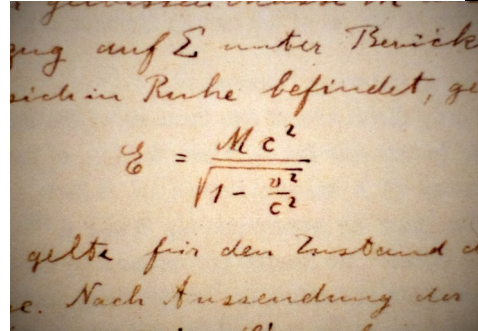 gewissen Masse M
zug auf Σ unter Berück
sich in Ruhe befindet, ge
ℰ = M c² / √(1 - v²/c²)
gelte für den Zustand d
e. Nach Aussendung der